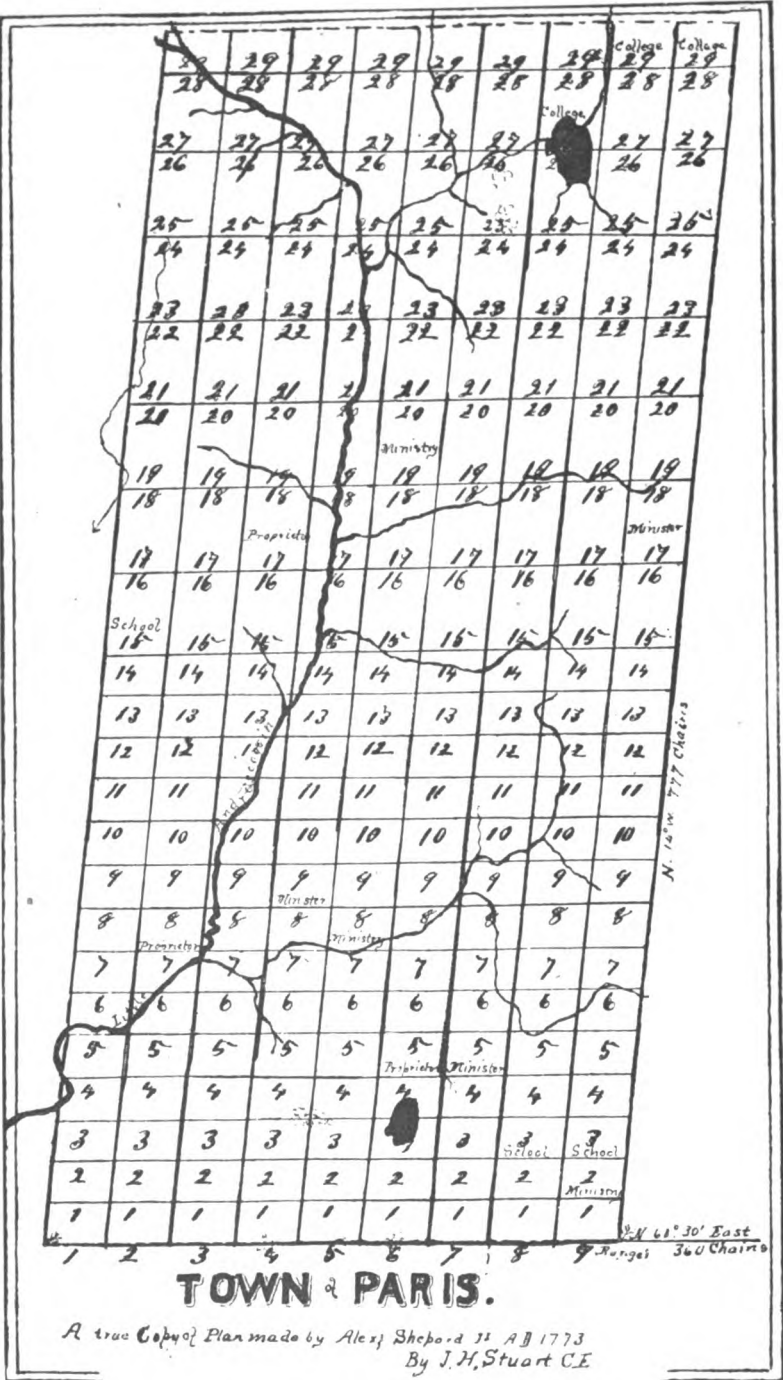 College College
29 29 29 29 29 29 29 29 29
28 28 28 28 28 28 28 28 28
College
27 27 27 27 27 27 27 27
26 26 26 26 26 26 26 26
25 25 25 25 25 25 25 25 25
24 24 24 24 24 24 24 24 24
23 23 23 23 23 23 23 23
22 22 22 22 22 22 22 22
21 21 21 21 21 21 21 21
20 20 20 20 20 20 20 20 20
Ministry
19 19 19 19 19 19 19 19 19
18 18 18 8 18 18 18 18 18
Proprietor Minister
17 17 17 7 17 17 17 17 17
16 16 16 16 16 16 16 16 16
School
15 15 15 15 15 15 15 15 15
14 14 14 14 14 14 14 14 14
13 13 13 13 13 13 13 13 13
12 12 12 12 12 12 12 12
11 11 11 11 11 11 11 11
10 10 10 10 10 10 10 10 10
9 9 9 9 9 9 9 9 9
Minister
8 8 8 8 8 8 8 8 8
Proprietor Ministry
7 7 7 7 7 7 7 7 7
6 6 6 6 6 6 6 6 6
5 5 5 5 5 5 5 5 5
Proprietor Minister
4 4 4 4 4 4 4 4 4
3 3 3 3 3 3 3 3
School School
2 2 2 2 2 2 2 2 2
Ministry
1 1 1 1 1 1 1 1 1
Little Androscoggin
N. 14° W. 777 Chains
N 61° 30' East
1 2 3 4 5 6 7 8 9 Ranges 360 Chains
TOWN of PARIS.
A true Copy of Plan made by Alex; Shepard Jr AD 1773
By J. H. Stuart C.E